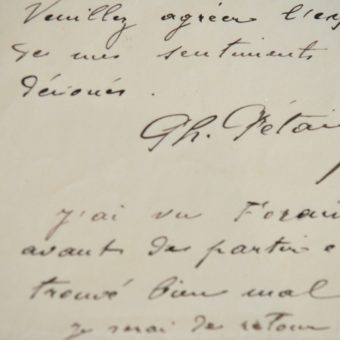 Veuillez agréer l'exp
de mes sentiments
dévoués.
Ph. Pétai
J'ai vu Forain
avant de partir e
trouvé bien mal
je serai de retour